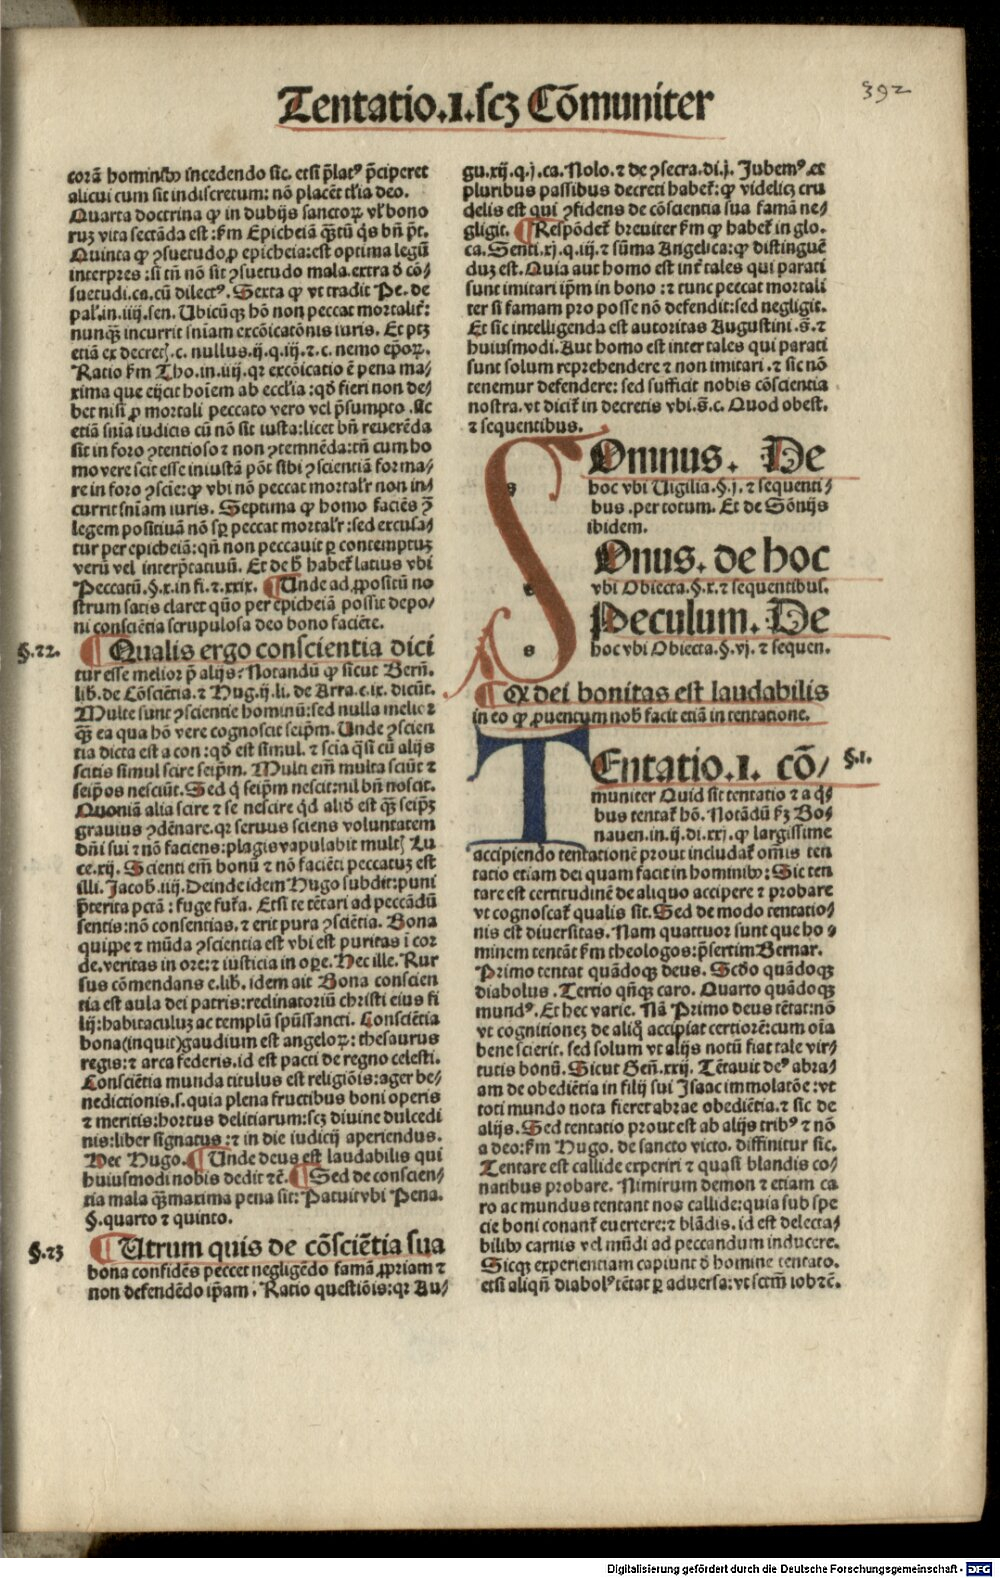 Tentatio.I.scꝫ Cōmuniter
392
corā hominibꝰ incedendo sic. etsi p̄latꝰ p̄ciperet
alicui cum sit indiscretum: nō placēt tľia deo.
Quarta doctrina ꝙ in dubijs sanctoꝝ vľ bono
ruꝫ vita sectāda est: ẜm Epicheiā q̄tū q̇s bn̄ pt̄.
Quinta ꝙ ꝯsuetudo ꝓ epicheia: est optima legū
interpres: si tn̄ nō sit ꝯsuetudo mala. extra ď cō/
suetudi. ca. cū dilectꝰ. Sexta ꝙ vt tradit Pe. de
pal. in .iiij. sen. Ubicūqꝫ hō non peccat mortaliṫ:
nunq̄ incurrit sn̄iam excōicatōnis iuris. Et ptꝫ
etiā ex decreť. c. nullus. ij. q. iij. ⁊ .c. nemo ep̄oꝝ.
Ratio ẜm Tho. in .iiij. qꝛ excōicatio ē pena ma/
xima que eijcit hoīem ab ecclīa: qď fieri non de/
bet nisi ꝓ mortali peccato vero vel p̄sumpto. Sic
etiā sn̄ia iudicis cū nō sit iusta: licet bn̄ reuerēda
sit in foro ꝯtentioso ⁊ non ꝯtemnēda: tn̄ cum ho
mo vere scit esse iniustā pōt sibi ꝯscientiā forma/
re in foro ꝯscīe: ꝙ vbi nō peccat mortalīr non in/
currit sn̄iam iuris. Septima ꝙ homo faciēs ꝯ̄
legem positiuā nō sꝑ peccat mortalīr: sed excusa/
tur per epicheiā: qn̄ non peccauit ꝑ contemptuꝫ
verū vel interp̄tatiuū. Et de ħ habeť latius vbi
Peccatū. §. x. in fi. ⁊ .xxix. ¶ Unde ad ꝓpositū no
strum satis claret quō per epicheiā possit depo/
ni conscientia scrupulosa deo bono faciēte.
§.22.
¶ Qualis ergo conscientia dici
tur esse melior p̄ alijs: Notandū ꝙ sicut Bern̄.
lib. de Cōsciētia. ⁊ Hug. ij. li. de Arra. c. ix. dicūt.
Multe sunt ꝯscientie hominū: sed nulla melioꝛ
q̄ ea qua hō vere cognoscit seip̄m. Unde ꝯscien
tia dicta est a con: qď est simul. ⁊ scia q̄si cū alijs
scitis simul scire seip̄m. Multi em̄ multa sciūt ⁊
seip̄os nesciūt. Sed q̇ seip̄m nescit: nil bn̄ noscit.
Quoniā alia scire ⁊ se nescire qď aliď est q̄ seip̄ꝫ
grauius ꝯdēnare. qꝛ seruus sciens voluntatem
dn̄i sui ⁊ nō faciens: plagis vapulabit multꝭ Lu
ce. xij. Scienti em̄ bonū ⁊ nō faciēti peccatuꝫ est
illi. Jacob. iiij. Deinde idem Hugo subdit: puni
p̄terita pctā: fuge fuťa. Etsi te tētari ad peccādū
sentis: nō consentias. ⁊ erit pura ꝯsciētia. Bona
quippe ⁊ mūda ꝯscientia est vbi est puritas ī cor
de. veritas in ore: ⁊ iusticia in oꝑe. Hec ille. Rur
sus cōmendans e. lib. idem ait Bona conscien
tia est aula dei patris: reclinatoriū christi eius fi
lij: habitaculuꝫ ac templū spūssancti. Consciētia
bona (inquit) gaudium est angeloꝝ: thesaurus
regis: ⁊ arca federis. id est pacti de regno celesti.
Consciētia munda titulus est religiōis: ager be/
nedictionis. s. quia plena fructibus boni operis
⁊ meritis: hortus delitiarum: scꝫ diuine dulcedi
nis: liber signatus: ⁊ in die iudicij aperiendus.
Hec Hugo. ¶ Unde deus est laudabilis qui
huiusmodi nobis dedit ⁊c̄. ¶ Sed de conscien/
tia mala q̄ maxima pena sit: Patuit vbi Pena.
§. quarto ⁊ quinto.
§.23
¶ Utrum quis de cōsciētia sua
bona confidēs peccet negligēdo famā ꝓpriam ⁊
non defendēdo ip̄am. Ratio questiōis: qꝛ Au/
gu. xij. q. j. ca. Nolo. ⁊ de ꝯsecra. di. j. Jubemꝰ. ex
pluribus passibus decreti habeť: ꝙ videlicꝫ cru
delis est qui ꝯfidens de cōscientia sua famā ne/
gligit. ¶ Respōdeť breuiter ẜm ꝙ habeť in glo.
ca. Senti. xj. q. iij. ⁊ sūma Angelica: ꝙ distinguē
duꝫ est. Quia aut homo est inť tales qui parati
sunt imitari ip̄m in bono: ⁊ tunc peccat mortali
ter si famam pro posse nō defendit: sed negligit.
Et sic intelligenda est autoritas Augustini. s̄. ⁊
huiusmodi. Aut homo est inter tales qui parati
sunt solum reprehendere ⁊ non imitari. ⁊ sic nō
tenemur defendere: sed sufficit nobis cōscientia
nostra. vt diciť in decretis vbi. s̄. c. Quod obest.
⁊ sequentibus.
SOmnus. De
hoc vbi Uigilia. §. j. ⁊ sequenti/
bus. per totum. Et de Sōnijs
ibidem.
SOnus. de hoc
vbi Obiecta. §. x. ⁊ sequentibus.
SPeculum. De
hoc vbi Obiecta. §. vj. ⁊ sequen.
¶ Qꝙ dei bonitas est laudabilis
in eo ꝙ ꝓuentum nob̄ facit etiā in tentatione.
TEntatio.I. cō/
§.I.
muniter Quid sit tentatio ⁊ a q̇/
bus tentať hō. Notādū ẜꝫ Bo/
nauen. in. ij. di. xxj. ꝙ largissime
accipiendo tentationē prout includať om̄is ten
tatio etiam dei quam facit in hominibꝰ: Sic ten
tare est certitudinē de aliquo accipere ⁊ probare
vt cognoscať qualis sit. Sed de modo tentatio/
nis est diuersitas. Nam quattuor sunt que ho/
minem tentāt ẜm theologos: p̄sertim Bernar.
Primo tentat quādoqꝫ deus. Scďo quādoqꝫ
diabolus. Tertio qn̄qꝫ caro. Quarto quādoqꝫ
mundꝰ. Et hec varie. Nā Primo deus tētat: nō
vt cognitioneꝫ de aliq̇ accipiat certiorē: cum oīa
bene scierit. sed solum vt alijs notū fiat tale vir/
tutis bonū. Sicut Gen̄. xxij. Tētauit deꝰ abra/
am de obediētia in filij sui Isaac immolatōe: vt
toti mundo nota fieret abrae obediētia. ⁊ sic de
alijs. Sed tentatio prout est ab alijs tribꝰ ⁊ nō
a deo: ẜm Hugo. de sancto victo. diffinitur sic.
Tentare est callide experiri ⁊ quasi blandis co/
natibus probare. Nimirum demon ⁊ etiam ca
ro ac mundus tentant nos callide: quia sub spe
cie boni conanť euertere: ⁊ blādis. id est delecta/
bilibꝰ carnis vel mūdi ad peccandum inducere.
Sicqꝫ experientiam capiunt ď homine tentato.
etsi aliqn̄ diabolꝰ tētat ꝑ aduersa: vt sctm̄ iob ⁊c̄.
Digitalisierung gefördert durch die Deutsche Forschungsgemeinschaft - DFG